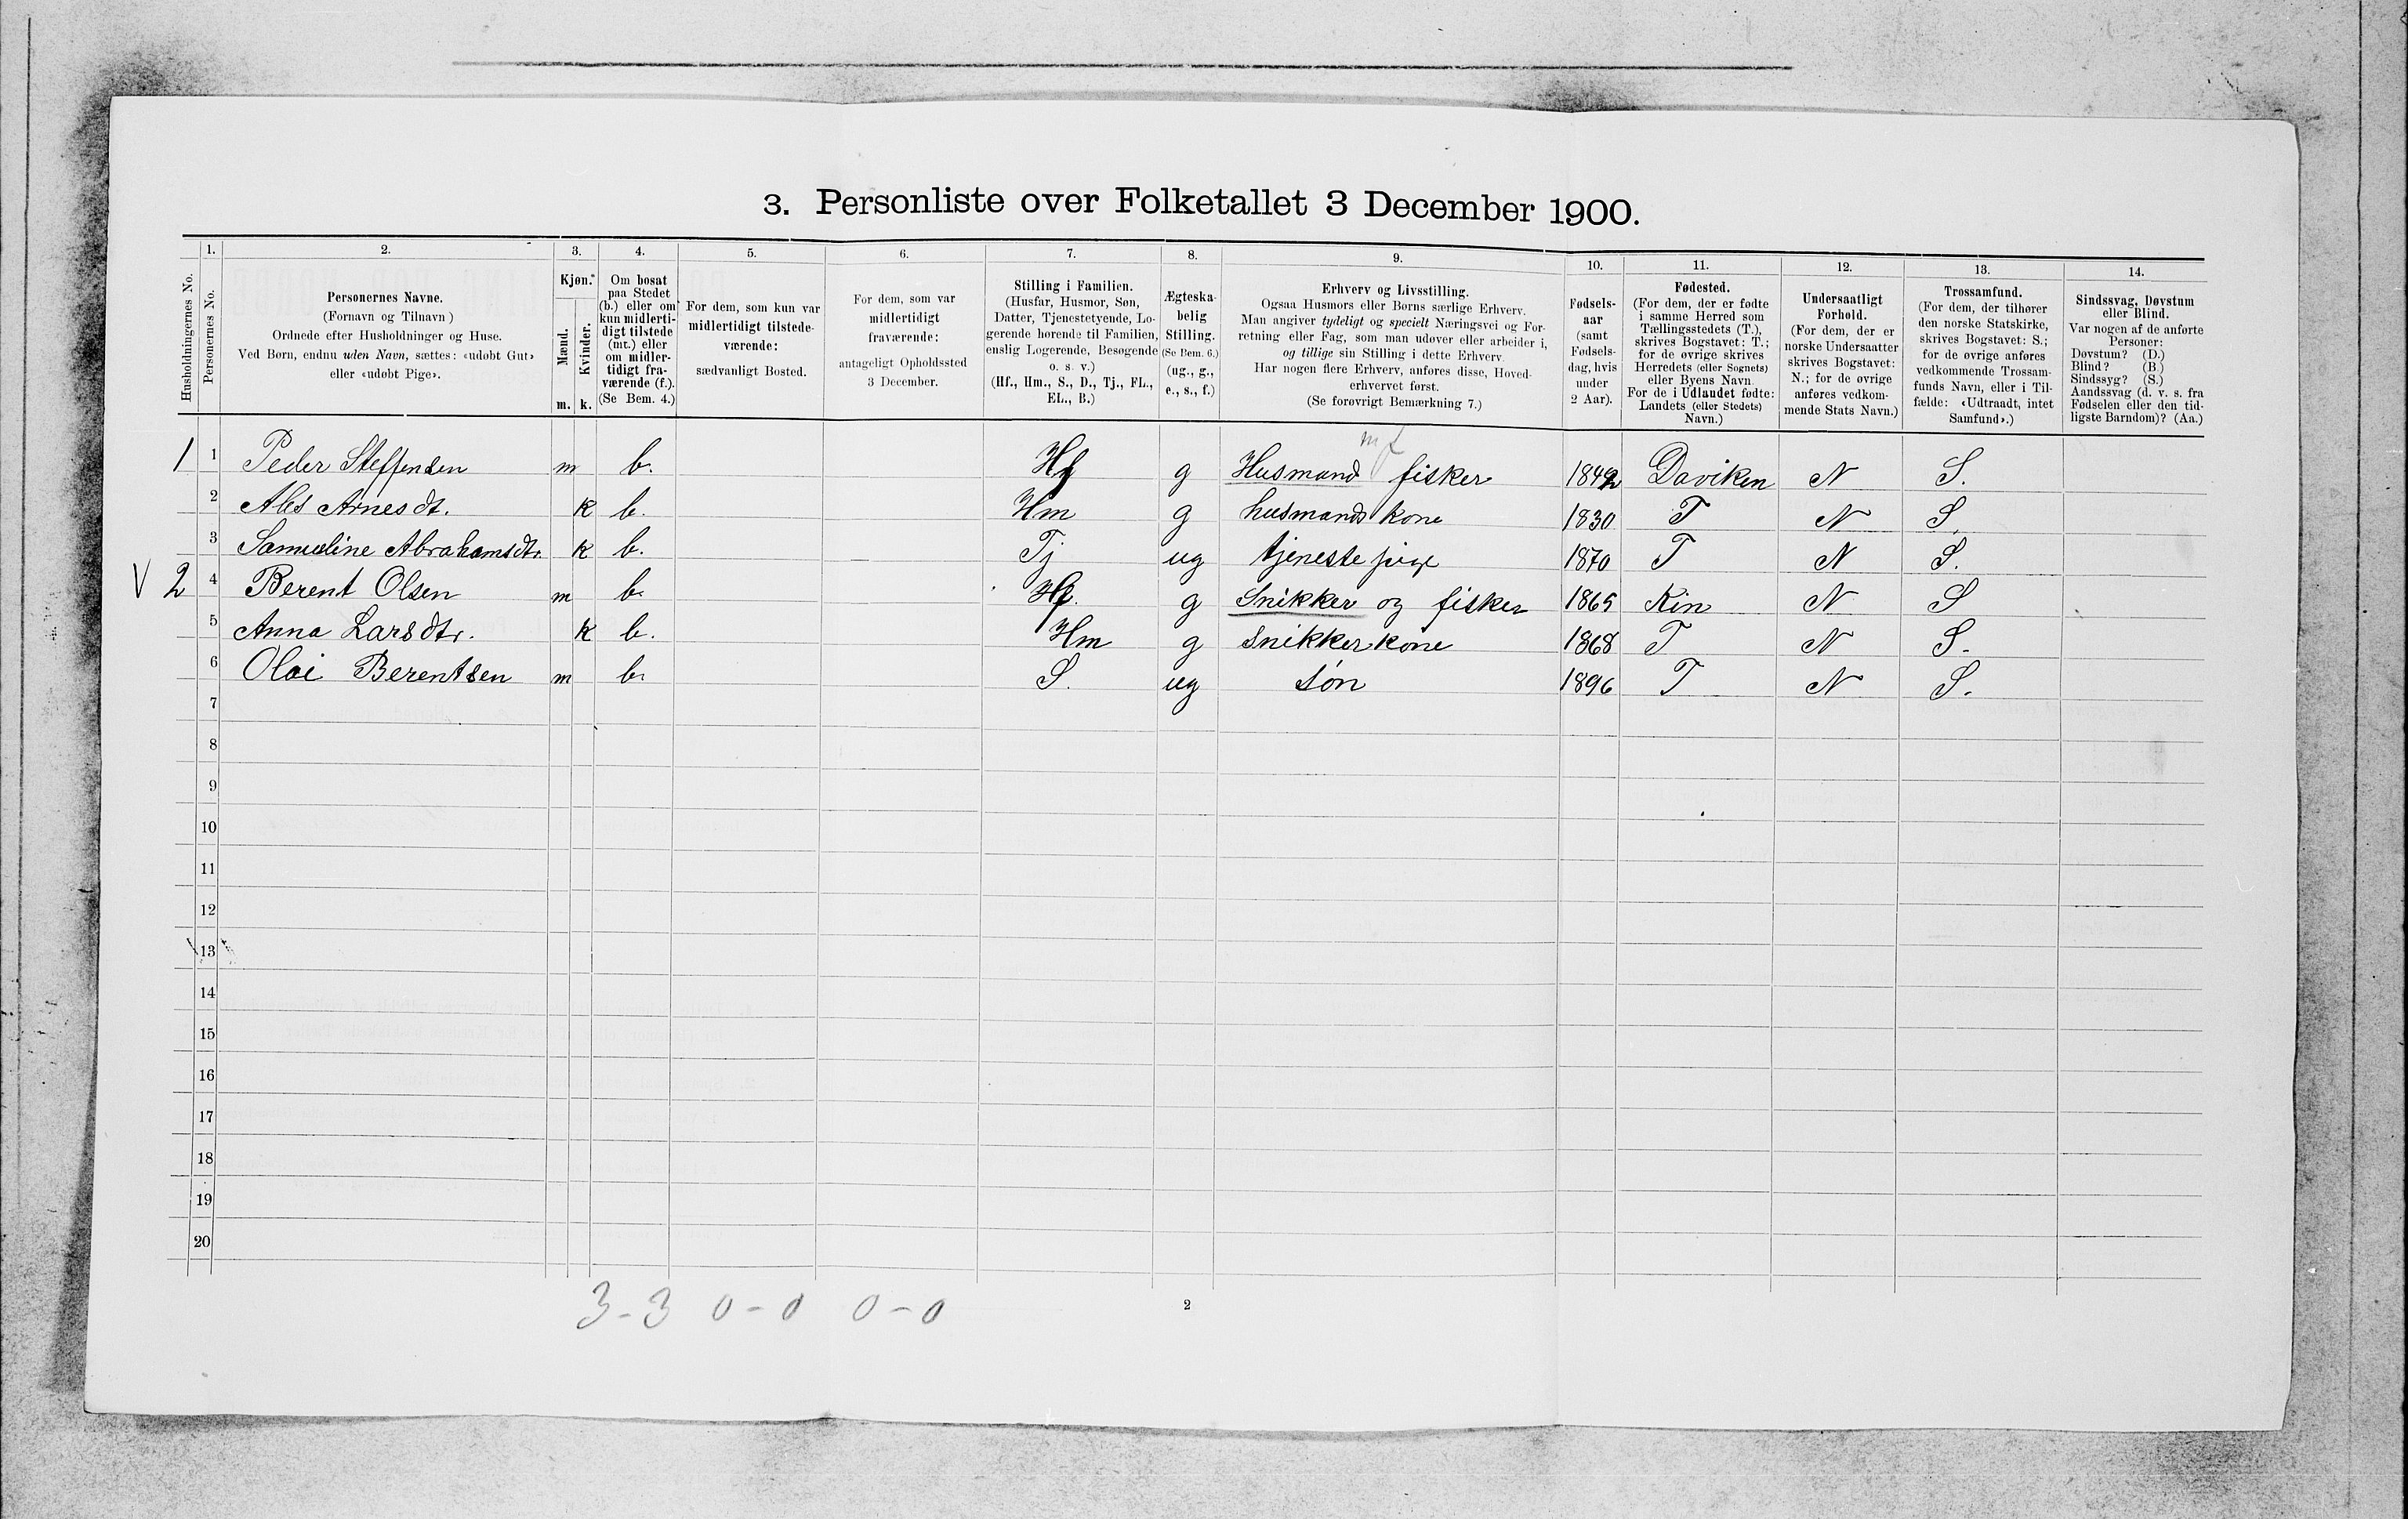 3. Personliste over Folketallet 3 December 1900.
Husholdningernes No.
1.
Personernes No.
2.
Personernes Navne.
(Fornavn og Tilnavn)
Ordnede efter Husholdninger og Huse.
Ved Børn, endnu uden Navn, sættes: «udøbt Gut»
eller «udøbt Pige».
3.
Kjøn.
Mænd.
m.
Kvinder.
k.
4.
Om bosat
paa Stedet
(b.) eller om
kun midlerti-
digt tilstede
(mt.) eller
om midler-
tidigt fra-
værende (f.).
(Se Bem. 4.)
5.
For dem, som kun var
midlertidigt tilstede-
værende:
sædvanligt Bosted.
6.
For dem, som var
midlertidigt
fraværende:
antageligt Opholdssted
3 December.
7.
Stilling i Familien.
(Husfar, Husmor, Søn,
Datter, Tjenestetyende, Lo-
gerende hørende til Familien,
enslig Logerende, Besøgende
o. s. v.)
(Hf., Hm., S., D., Tj., FL.,
EL., B.)
8.
Ægteska-
belig
Stilling.
(Se Bem. 6.)
(ug., g.,
e., s., f.)
9.
Erhverv og Livsstilling.
Ogsaa Husmors eller Børns særlige Erhverv.
Man angiver tydeligt og specielt Næringsvei og For-
retning eller Fag, som man udøver eller arbeider i,
og tillige sin Stilling i dette Erhverv.
Har nogen flere Erhverv, anføres disse, Hoved-
erhvervet først.
(Se forøvrigt Bemærkning 7.)
10.
Fødsels-
aar
(samt
Fødsels-
dag, hvis
under
2 Aar).
11.
Fødested.
(For dem, der er fødte
i samme Herred som
Tællingsstedets (T.),
skrives Bogstavet: T.;
for de øvrige skrives
Herredets (eller Sognets)
eller Byens Navn.
For de i Udlandet fødte:
Landets (eller Stedets)
Navn.)
12.
Undersaatligt
Forhold.
(For dem, der er
norske Undersaatter
skrives Bogstavet:
N.; for de øvrige
anføres vedkom-
mende Stats Navn.)
13.
Trossamfund.
(For dem, der tilhører
den norske Statskirke,
skrives Bogstavet: S.;
for de øvrige anføres
vedkommende Trossam-
funds Navn, eller i Til-
fælde: «Udtraadt, intet
Samfund».)
14.
Sindssvag, Døvstum
eller Blind.
Var nogen af de anførte
Personer:
Døvstum? (D.)
Blind? (B.)
Sindssyg? (S.)
Aandssvag (d. v. s. fra
Fødselen eller den tid-
ligste Barndom)? (Aa.)
mf
1 1 Peder Steffensen m b. Hf g Husmand fisker 1842 Daviken N S.
2 Ales Arnesdt. k b. Hm g husmands kone 1830 T N S.
3 Samueline Abrahamsdtr. k b. Tj ug tjenestepige 1870 T N S.
V 2 4 Berent Olsen m b. Hf. g Snikker og fisker 1865 Kin N S
5 Anna Larsdtr. k b. Hm g snikkerkone 1868 T N S.
6 Olai Berentsen m b. S. ug søn 1896 T N S.
7
8
9
10
11
12
13
14
15
16
17
18
19
20
3-3 0-0 0-0
2